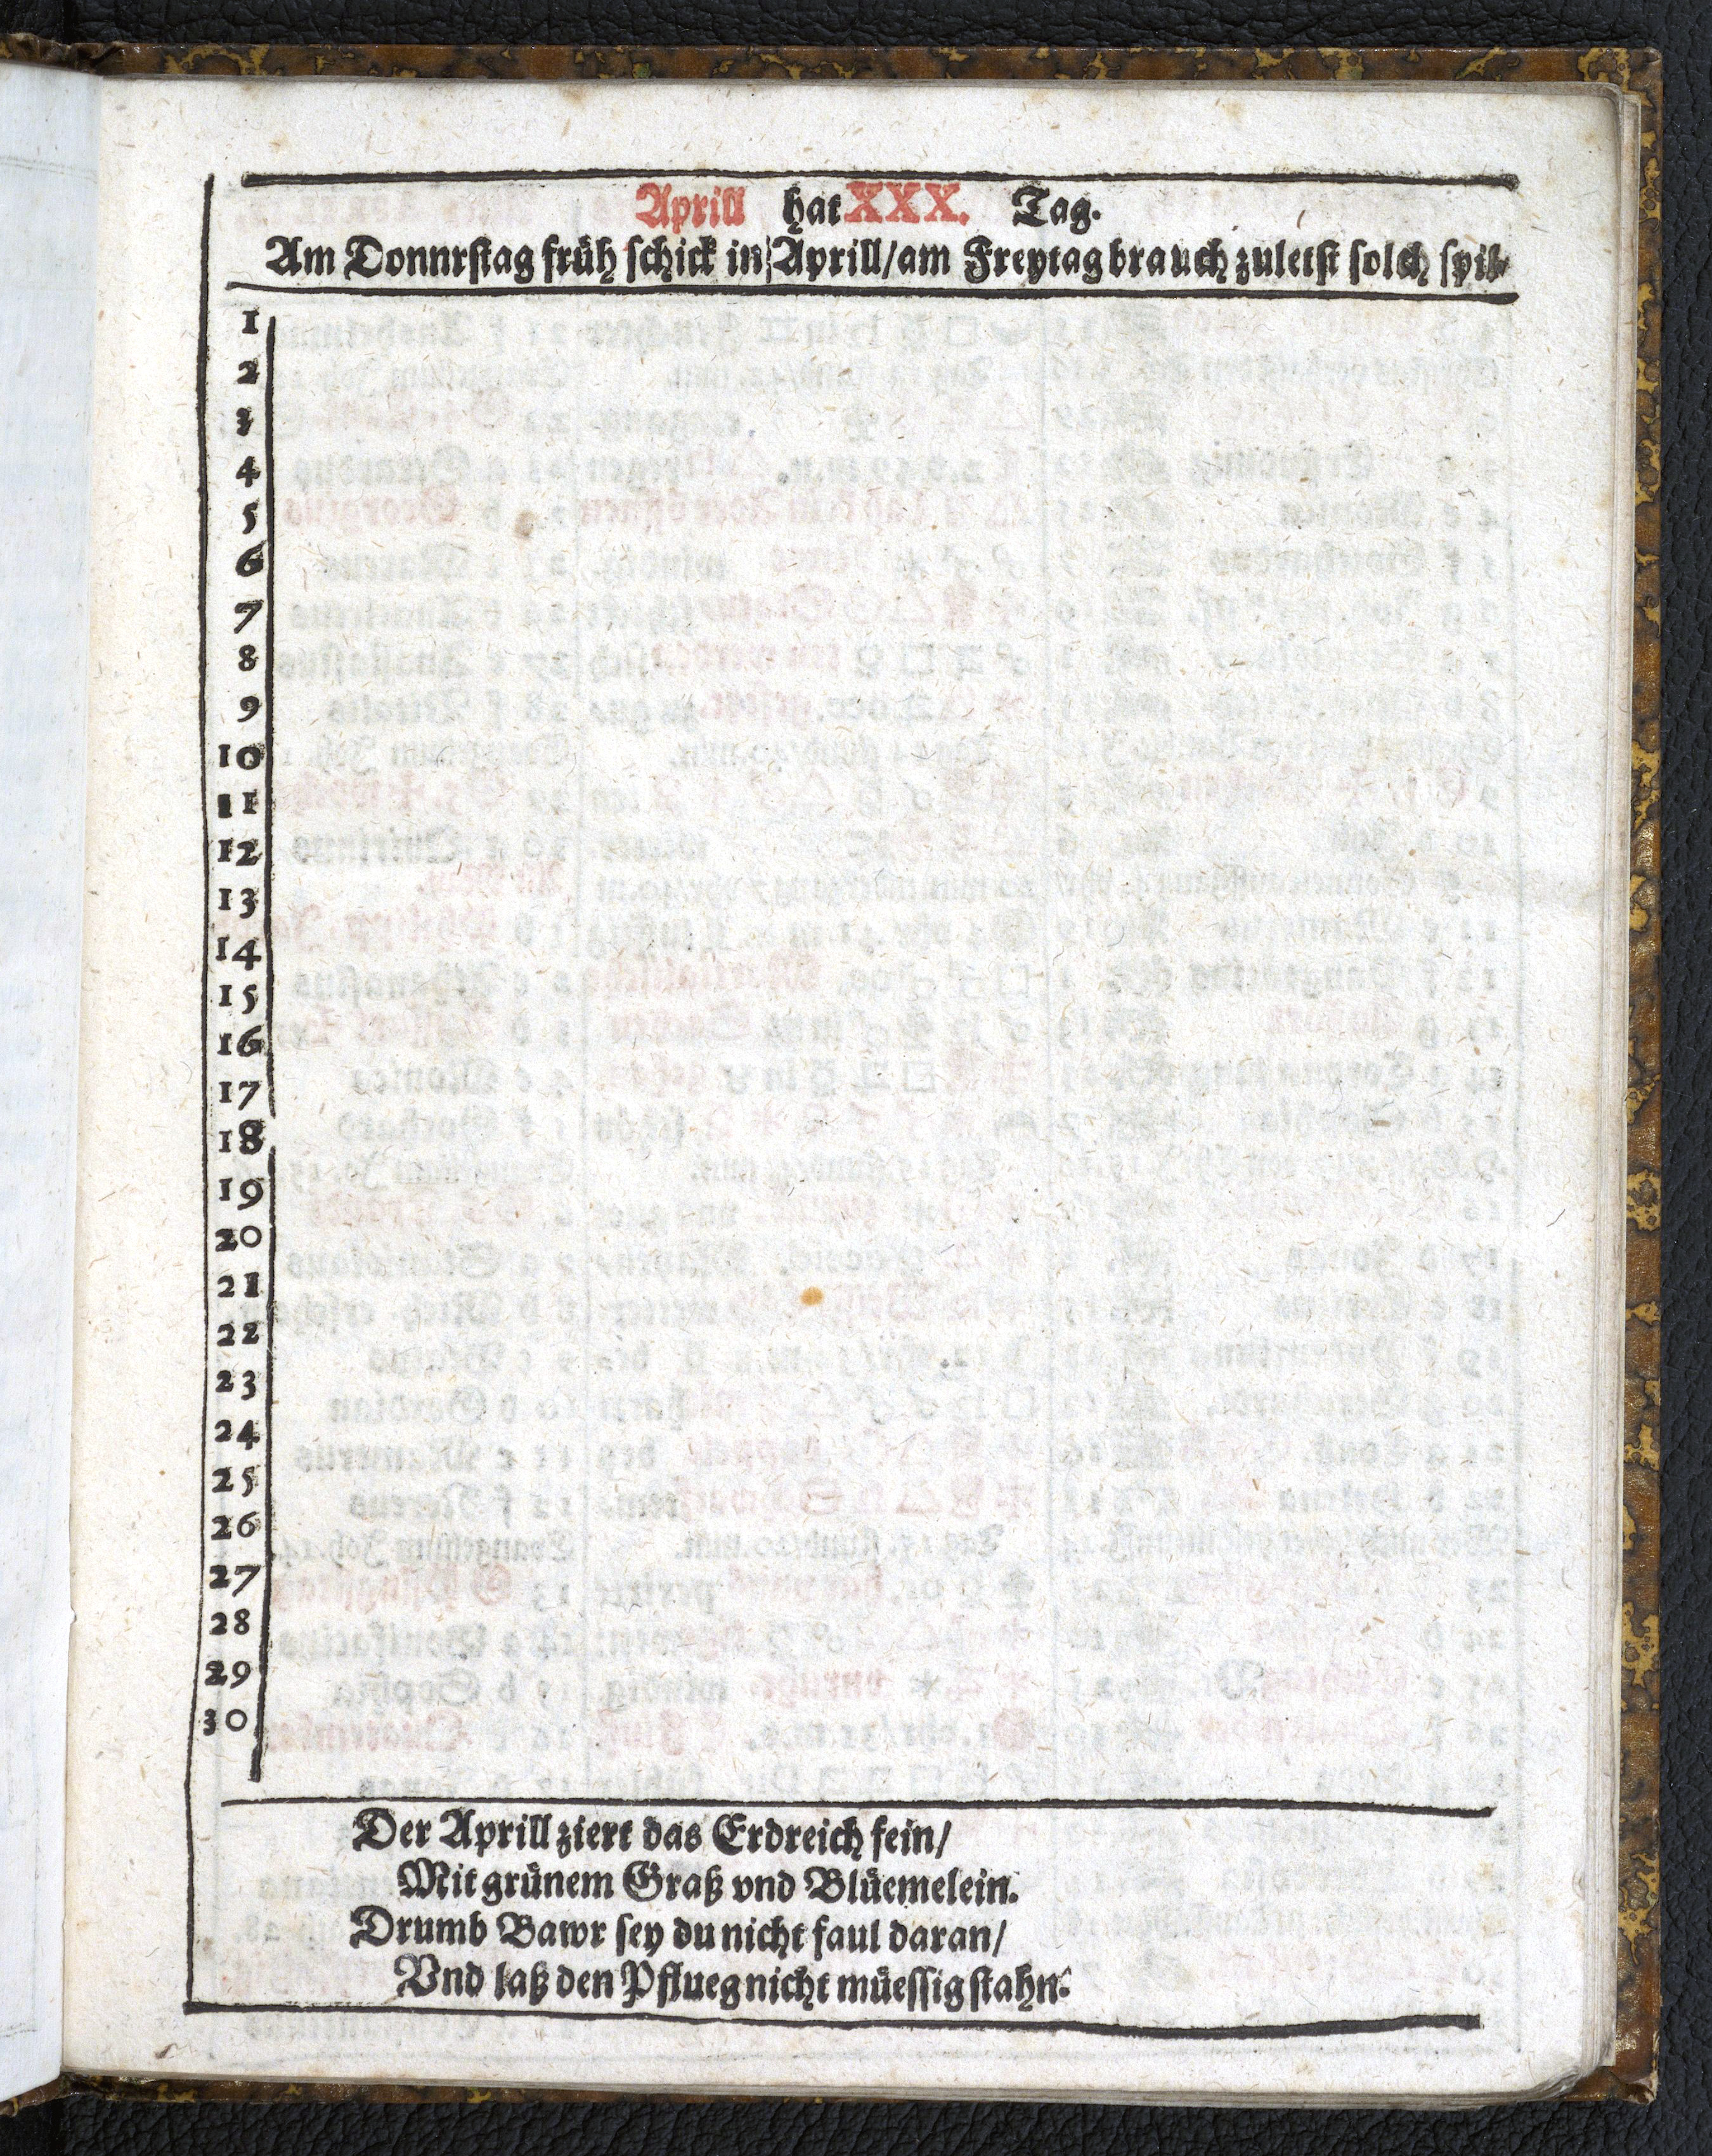 Aprill hat XXX. Tag.
Am Donnrstag früh schick in Aprill/am Freytag brauch zuletst solch spil.
1
2
3
4
5
6
7
8
9
10
11
12
13
14
15
16
17
18
19
20
21
22
23
24
25
26
27
28
29
30
Der Aprill ziert das Erdreich fein/
Mit grünem Graß vnd Blüemelein.
Drumb Bawr sey du nicht faul daran/
Vnd laß den Pfluegnicht müessig stahn.